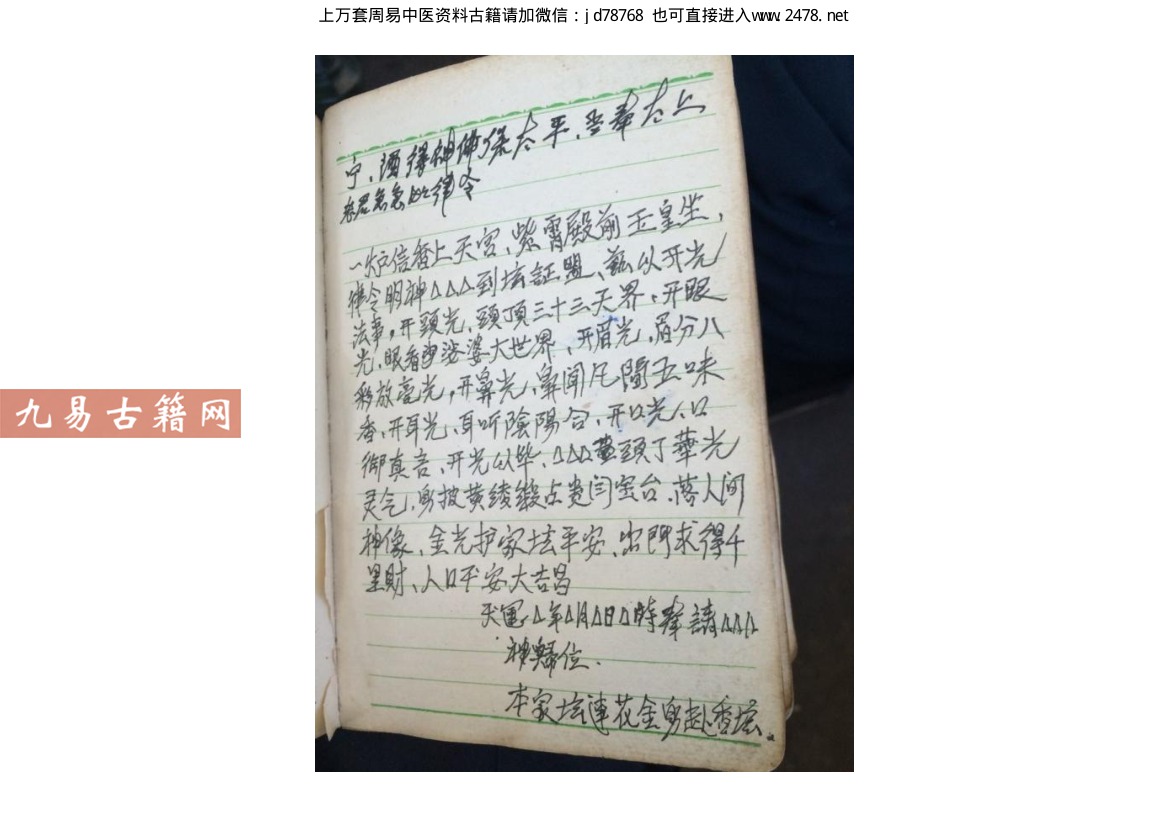 上万套周易中医资料古籍请加微信：jd78768 也可直接进入www.2478.net
宁、酒得神佛保太平、吾奉太上
老君急急如律令
一炉信香上天宫、紫霄殿前玉皇坐，
律令明神△△△到坛証盟、兹以开光
法事，开頭光、頭頂三十三天界、开眼
光、眼看娑婆大世界、开眉光、眉分八
彩放毫光，开鼻光、鼻闻凡間五味
香、开耳光、耳听陰陽合、开口光、口
御真言、开光以毕、△△△頭丁華光
灵气、身披黄绫缎点宝台、落人间
神像、金光护家坛平安、出門求得千
里財、人口平安大吉昌
天運△年△月△日△時奉請△△△
神歸位.
本家坛連花金身赴香坛。
九易古籍网